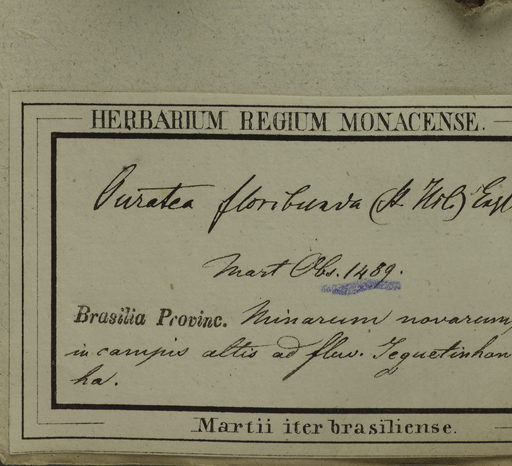 HERBARIUM REGIUM MONACENSE.
Ouratea floribunda (St Hil.) Engl
Mart Obs. 1489.
Brasilia Provinc. Minarum novarum,
in campis altis ad fluv. Jequetinhon
ha.
Martii iter brasiliense.